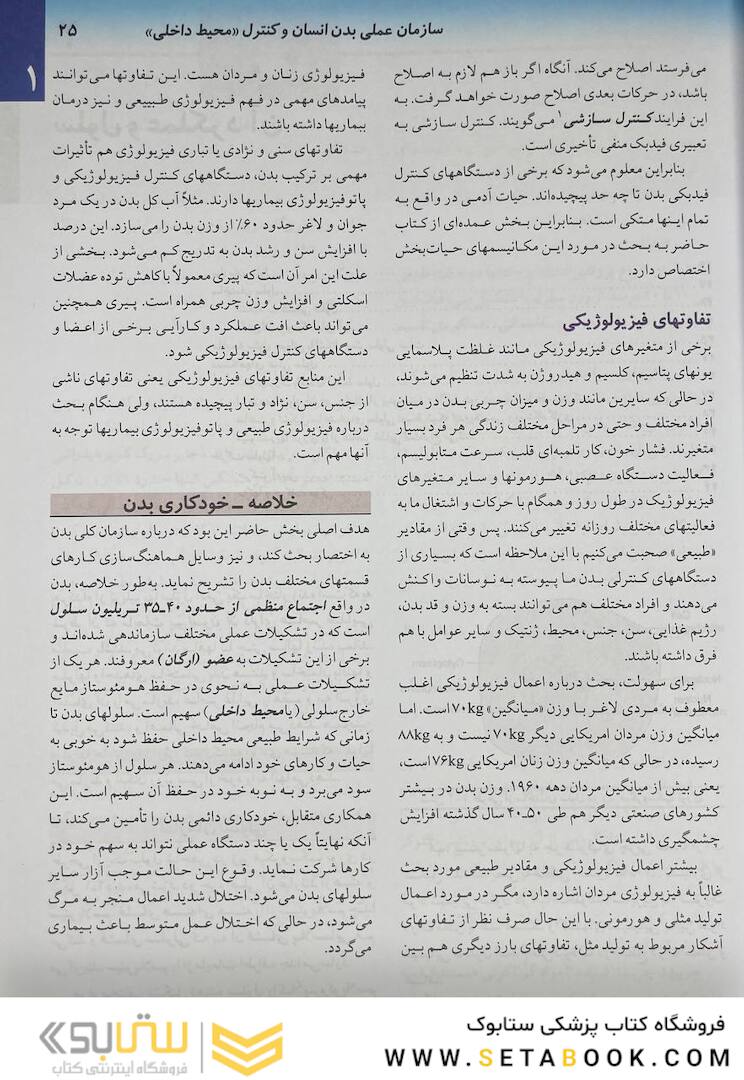 سازمان عملی بدن انسان و کنترل «محیط داخلی» ۲۵
۱
می‌فرستد اصلاح می‌کند. آنگاه اگر باز هم لازم به اصلاح
باشد، در حرکات بعدی اصلاح صورت خواهد گرفت. به
این فرایند کنترل سازشی۱ می‌گویند. کنترل سازشی به
تعبیری فیدبک منفی تأخیری است.
بنابراین معلوم می‌شود که برخی از دستگاههای کنترل
فیدبکی بدن تا چه حد پیچیده‌اند. حیات آدمی در واقع به
تمام اینها متکی است. بنابراین بخش عمده‌ای از کتاب
حاضر به بحث در مورد این مکانیسمهای حیات‌بخش
اختصاص دارد.
تفاوتهای فیزیولوژیکی
برخی از متغیرهای فیزیولوژیکی مانند غلظت پلاسمایی
یونهای پتاسیم، کلسیم و هیدروژن به شدت تنظیم می‌شوند،
در حالی که سایرین مانند وزن و میزان چربی بدن در میان
افراد مختلف و حتی در مراحل مختلف زندگی هر فرد بسیار
متغیرند. فشار خون، کار تلمبه‌ای قلب، سرعت متابولیسم،
فعالیت دستگاه عصبی، هورمونها و سایر متغیرهای
فیزیولوژیک در طول روز و همگام با حرکات و اشتغال ما به
فعالیتهای مختلف روزانه تغییر می‌کنند. پس وقتی از مقادیر
«طبیعی» صحبت می‌کنیم با این ملاحظه است که بسیاری از
دستگاههای کنترلی بدن ما پیوسته به نوسانات واکنش
می‌دهند و افراد مختلف هم می توانند بسته به وزن و قد بدن،
رژیم غذایی، سن، جنس، محیط، ژنتیک و سایر عوامل با هم
فرق داشته باشند.
برای سهولت، بحث درباره اعمال فیزیولوژیکی اغلب
معطوف به مردی لاغر با وزن «میانگین» ۷۰kg است. اما
میانگین وزن مردان امریکایی دیگر ۷۰kg نیست و به ۸۸kg
رسیده، در حالی که میانگین وزن زنان امریکایی ۷۶kg است،
یعنی بیش از میانگین مردان دهه ۱۹۶۰. وزن بدن در بیشتر
کشورهای صنعتی دیگر هم طی ۵۰ـ۴۰ سال گذشته افزایش
چشمگیری داشته است.
بیشتر اعمال فیزیولوژیکی و مقادیر طبیعی مورد بحث
غالباً به فیزیولوژی مردان اشاره دارد، مگر در مورد اعمال
تولید مثلی و هورمونی. با این حال صرف نظر از تفاوتهای
آشکار مربوط به تولید مثل، تفاوتهای بارز دیگری هم بین
فیزیولوژی زنان و مردان هست. این تفاوتها می‌توانند
پیامدهای مهمی در فهم فیزیولوژی طبیعی و نیز درمان
بیماریها داشته باشند.
تفاوتهای سنی و نژادی یا تباری فیزیولوژی هم تأثیرات
مهمی بر ترکیب بدن، دستگاههای کنترل فیزیولوژیکی و
پاتوفیزیولوژی بیماریها دارند. مثلاً آب کل بدن در یک مرد
جوان و لاغر حدود ۶۰٪ از وزن بدن را می‌سازد. این درصد
با افزایش سن و رشد بدن به تدریج کم می‌شود. بخشی از
علت این امر آن است که پیری معمولاً با کاهش توده عضلات
اسکلتی و افزایش وزن چربی همراه است. پیری همچنین
می‌تواند باعث افت عملکرد و کارآیی برخی از اعضا و
دستگاههای کنترل فیزیولوژیکی شود.
این منابع تفاوتهای فیزیولوژیکی یعنی تفاوتهای ناشی
از جنس، سن، نژاد و تبار پیچیده هستند، ولی هنگام بحث
درباره فیزیولوژی طبیعی و پاتوفیزیولوژی بیماریها توجه به
آنها مهم است.
خلاصه ـ خودکاری بدن
هدف اصلی بخش حاضر این بود که درباره سازمان کلی بدن
به اختصار بحث کند، و نیز وسایل هماهنگ‌سازی کارهای
قسمتهای مختلف بدن را تشریح نماید. به‌طور خلاصه، بدن
در واقع اجتماع منظمی از حدود ۴۰ـ۳۵ تریلیون سلول
است که در تشکیلات عملی مختلف سازماندهی شده‌اند و
برخی از این تشکیلات به عضو (ارگان) معروفند. هر یک از
تشکیلات عملی به نحوی در حفظ هومئوستاز مایع
خارج‌سلولی (یا محیط داخلی) سهیم است. سلولهای بدن تا
زمانی که شرایط طبیعی محیط داخلی حفظ شود به خوبی به
حیات و کارهای خود ادامه می‌دهند. هر سلول از هومئوستاز
سود می‌برد و به نوبه خود در حفظ آن سهیم است. این
همکاری متقابل، خودکاری دائمی بدن را تأمین می‌کند، تا
آنکه نهایتاً یک یا چند دستگاه عملی نتواند به سهم خود در
کارها شرکت نماید. وقوع این حالت موجب آزار سایر
سلولهای بدن می‌شود. اختلال شدید اعمال منجر به مرگ
می‌شود، در حالی که اختلال عمل متوسط باعث بیماری
می‌گردد.
فروشگاه کتاب پزشکی ستابوک
WWW.SETABOOK.COM
ستابوک
فروشگاه اینترنتی کتاب